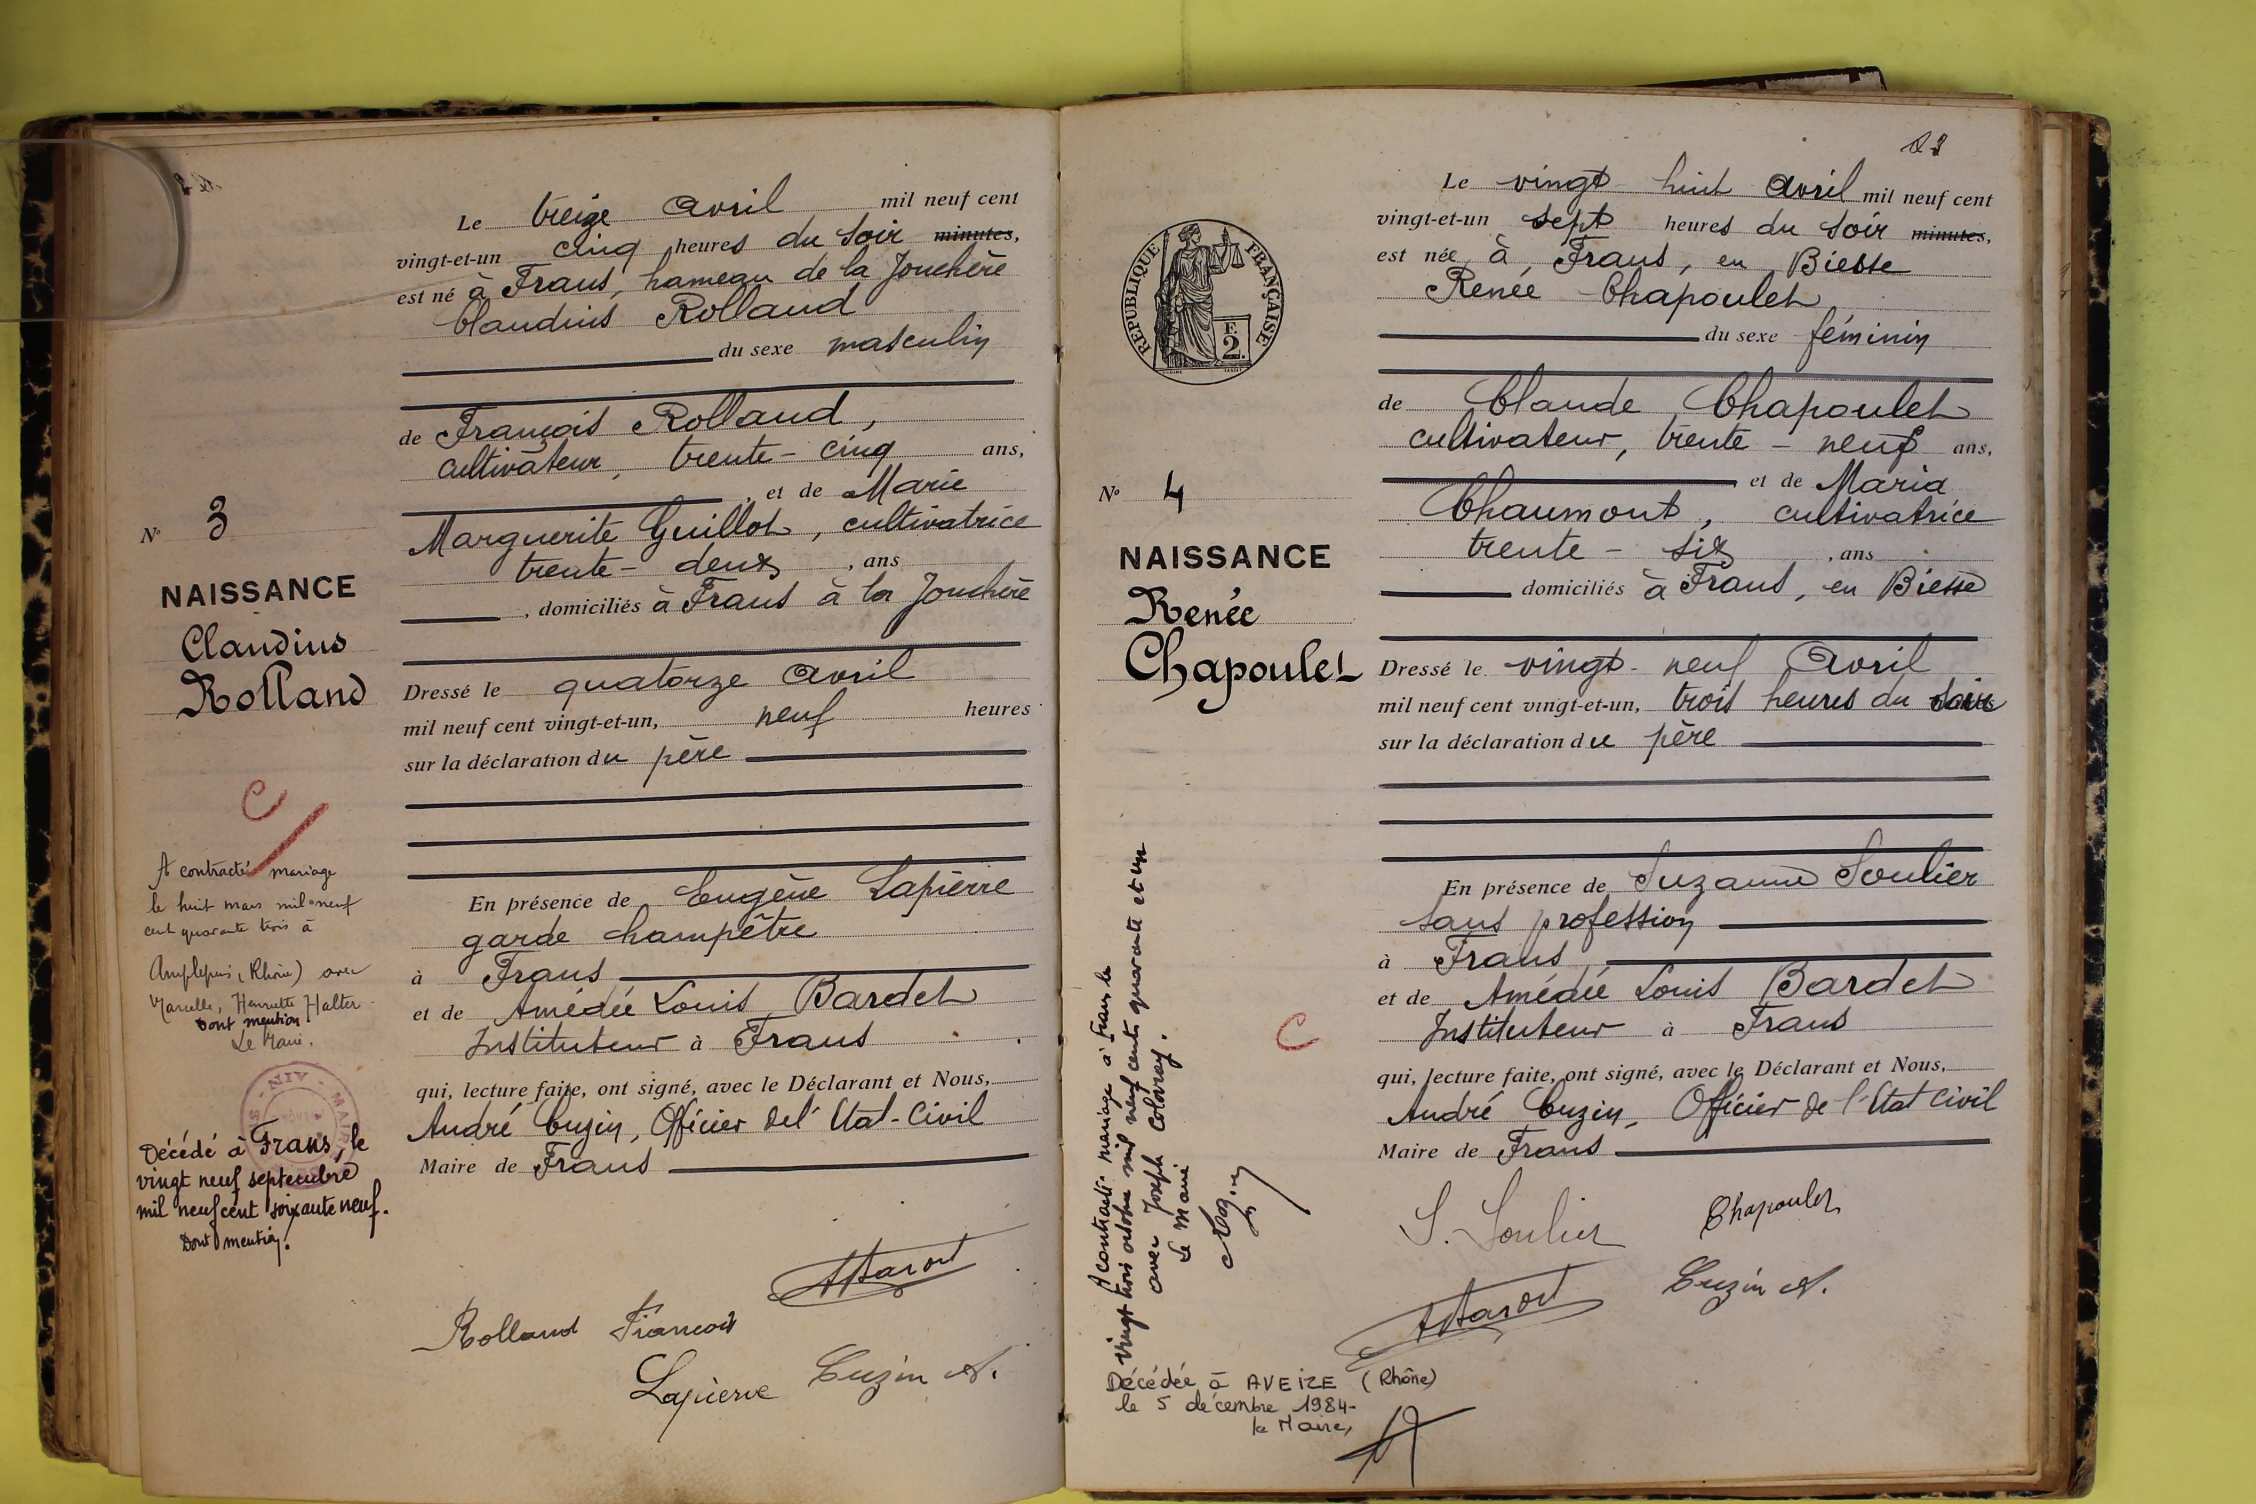 Le treize avril mil neuf cent
vingt-et-un cinq heures du soir minutes,
est né à Frans, hameau de la Jonchère
Claudius Rolland
du sexe masculin
de François Rolland,
cultivateur, trente-cinq ans,
, et de Marie
Marguerite Guillot, cultivatrice
trente-deux, ans
, domiciliés à Frans à la Jonchère
Dressé le quatorze avril
mil neuf cent vingt-et-un, neuf heures
sur la déclaration du père
En présence de Eugène Lapierre
garde champêtre
à Frans
et de Amédée Louis Bardet
Instituteur à Frans
qui, lecture faite, ont signé, avec le Déclarant et Nous,
André Cuzin, Officier de l'Etat-Civil
Maire de Frans
Rolland François
Lapierre Cuzin A.
No 3
NAISSANCE
Claudius
Rolland
C
A contracté mariage
le huit mars mil neuf
cent quarante trois à
Amplepuis (Rhône) avec
Marcelle, Henriette Halter
Dont mention
Le Maire.
Décédé à Frans, le
vingt neuf septembre
mil neuf cent soixante neuf.
Dont mention.
RÉPUBLIQUE FRANÇAISE
F.
2.
No 4
NAISSANCE
Renée
Chapoulet
A contracté mariage à Frans le
vingt trois octobre mil neuf cent quarante et un
avec Joseph Colovray.
Le Maire
C
Décédée à AVEIZE (Rhône)
le 5 décembre 1984-
le Maire,
Le vingt-huit avril mil neuf cent
vingt-et-un sept heures du soir minutes,
est née à Frans, en Biesse
Renée Chapoulet
du sexe féminin
de Claude Chapoulet
cultivateur, trente-neuf ans,
, et de Maria
Chaumont, cultivatrice
trente-six, ans
domiciliés à Frans, en Biesse
Dressé le vingt-neuf avril
mil neuf cent vingt-et-un, trois heures du soir
sur la déclaration du père
En présence de Suzanne Soulier
sans profession
à Frans
et de Amédée Louis Bardet
Instituteur à Frans
qui, lecture faite, ont signé, avec le Déclarant et Nous,
André Cuzin, Officier de l'Etat civil
Maire de Frans
S. Soulier Chapoulet
Cuzin A.